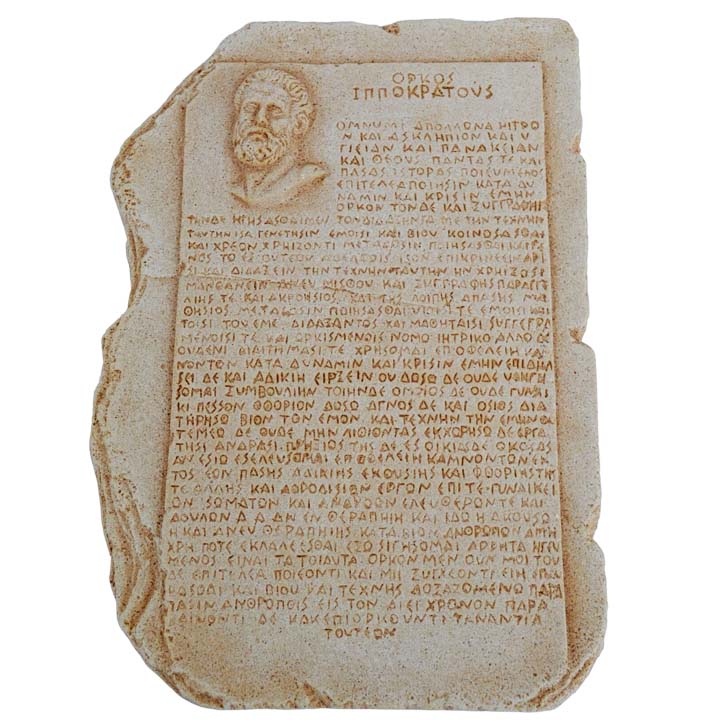 ΟΡΚΟΣ
ΙΠΠΟΚΡΑΤΟΥΣ
ΟΜΝΥΜΙ ΑΠΟΛΛΩΝΑ ΙΗΤΡΟ
Ν ΚΑΙ ΑΣΚΛΗΠΙΟΝ ΚΑΙ Υ
ΓΙΕΙΑΝ ΚΑΙ ΠΑΝΑΚΕΙΑΝ
ΚΑΙ ΘΕΟΥΣ ΠΑΝΤΑΣ ΤΕ ΚΑΙ
ΠΑΣΑΣ ΙΣΤΟΡΑΣ ΠΟΙΕΥΜΕΝΟΣ
ΕΠΙΤΕΛΕΑ ΠΟΙΗΣΙΝ ΚΑΤΑ ΔΥ
ΝΑΜΙΝ ΚΑΙ ΚΡΙΣΙΝ ΕΜΗΝ
ΟΡΚΟΝ ΤΟΝΔΕ ΚΑΙ ΞΥΓΓΡΑΦΗΝ
ΤΗΝΔΕ ΤΟΝ ΔΙΔΑΞΑΝΤΑ ΜΕ ΤΗΝ ΤΕΧΝΗΝ
ΤΑΥΤΗΝ ΙΣΑ ΓΕΝΕΤΗΣΙΝ ΕΜΟΙΣΙ ΚΑΙ ΒΙΟΥ ΚΟΙΝΩΣΑΣΘΑΙ
ΚΑΙ ΧΡΕΩΝ ΧΡΗΙΖΟΝΤΙ ΜΕΤΑΔΟΣΙΝ ΠΟΙΗΣΑΣΘΑΙ ΚΑΙ ΓΕ
ΝΟΣ ΤΟ ΕΞ ΑΔΕΛΦΟΙΣ ΙΣΟΝ
ΣΙ ΚΑΙ ΔΙΔΑΞΕΙΝ ΤΗΝ ΤΕΧΝΗΝ ΤΑΥΤΗΝ ΗΝ ΧΡΗΙΖΩΣΙ
ΜΑΝΘΑΝΕΙΝ ΑΝΕΥ ΜΙΣΘΟΥ ΚΑΙ ΞΥΓΓΡΑΦΗΣ ΠΑΡΑΓΓΕ
ΛΙΗΣ ΤΕ ΚΑΙ ΑΚΡΟΗΣΙΟΣ ΚΑΙ ΤΗΣ ΛΟΙΠΗΣ ΑΠΑΣΗΣ ΜΑ
ΘΗΣΙΟΣ ΜΕΤΑΔΟΣΙΝ ΠΟΙΗΣΑΣΘΑΙ ΥΙΟΙΣΙ ΤΕ ΕΜΟΙΣΙ ΚΑΙ
ΤΟΙΣΙ ΤΟΥ ΕΜΕ ΔΙΔΑΞΑΝΤΟΣ ΚΑΙ ΜΑΘΗΤΑΙΣΙ ΣΥΓΓΕΓΡΑ
ΜΕΝΟΙΣΙ ΤΕ ΚΑΙ ΩΡΚΙΣΜΕΝΟΙΣ ΝΟΜΩ ΙΗΤΡΙΚΩ ΑΛΛΩ ΔΕ
ΟΥΔΕΝΙ ΔΙΑΙΤΗΜΑΣΙ ΤΕ ΧΡΗΣΟΜΑΙ ΕΠ ΩΦΕΛΕΙΗ ΚΑΜ
ΝΟΝΤΩΝ ΚΑΤΑ ΔΥΝΑΜΙΝ ΚΑΙ ΚΡΙΣΙΝ ΕΜΗΝ ΕΠΙ ΔΗΛΗ
ΣΕΙ ΔΕ ΚΑΙ ΑΔΙΚΙΗ ΕΙΡΞΕΙΝ ΟΥ ΔΩΣΩ ΔΕ ΟΥΔΕ ΥΦΗΓΗ
ΣΟΜΑΙ ΞΥΜΒΟΥΛΙΗΝ ΤΟΙΗΝΔΕ ΟΜΟΙΩΣ ΔΕ ΟΥΔΕ ΓΥΝΑΙ
ΚΙ ΠΕΣΣΟΝ ΦΘΟΡΙΟΝ ΔΩΣΩ ΑΓΝΩΣ ΔΕ ΚΑΙ ΟΣΙΩΣ ΔΙΑ
ΤΗΡΗΣΩ ΒΙΟΝ ΤΟΝ ΕΜΟΝ ΚΑΙ ΤΕΧΝΗΝ ΤΗΝ ΕΜΗΝ ΟΥ
ΤΕΜΕΩ ΔΕ ΟΥΔΕ ΜΗΝ ΛΙΘΙΩΝΤΑΣ ΕΚΧΩΡΗΣΩ ΔΕ ΕΡΓΑ
ΤΗΣΙ ΑΝΔΡΑΣΙ ΠΡΗΞΙΟΣ ΤΗΣΔΕ ΕΣ ΟΙΚΙΑΣ ΔΕ ΟΚΟΣΑΣ
ΑΝ ΕΣΙΩ ΕΣΕΛΕΥΣΟΜΑΙ ΕΠ ΩΦΕΛΕΙΗ ΚΑΜΝΟΝΤΩΝ ΕΚ
ΤΟΣ ΕΩΝ ΠΑΣΗΣ ΑΔΙΚΙΗΣ ΕΚΟΥΣΙΗΣ ΚΑΙ ΦΘΟΡΙΗΣ ΤΗΣ
ΤΕ ΑΛΛΗΣ ΚΑΙ ΑΦΡΟΔΙΣΙΩΝ ΕΡΓΩΝ ΕΠΙ ΤΕ ΓΥΝΑΙΚΕΙ
ΩΝ ΣΩΜΑΤΩΝ ΚΑΙ ΑΝΔΡΩΩΝ ΕΛΕΥΘΕΡΩΝ ΤΕ ΚΑΙ
ΔΟΥΛΩΝ Α Δ ΑΝ ΕΝ ΘΕΡΑΠΗΙΗ Η ΙΔΩ Η ΑΚΟΥΣΩ
Η ΚΑΙ ΑΝΕΥ ΘΕΡΑΠΗΙΗΣ ΚΑΤΑ ΒΙΟΝ ΑΝΘΡΩΠΩΝ Α ΜΗ
ΧΡΗ ΠΟΤΕ ΕΚΛΑΛΕΕΣΘΑΙ ΕΞΩ ΣΙΓΗΣΟΜΑΙ ΑΡΡΗΤΑ ΗΓΕΥ
ΜΕΝΟΣ ΕΙΝΑΙ ΤΑ ΤΟΙΑΥΤΑ ΟΡΚΟΝ ΜΕΝ ΟΥΝ ΜΟΙ ΤΟΥ
ΔΕ ΕΠΙΤΕΛΕΑ ΠΟΙΕΟΝΤΙ ΚΑΙ ΜΗ ΞΥΓΧΕΟΝΤΙ ΕΙΗ
ΚΑΙ ΒΙΟΥ ΚΑΙ ΤΕΧΝΗΣ ΔΟΞΑΖΟΜΕΝΩ ΠΑΡΑ
ΠΑΣΙΝ ΑΝΘΡΩΠΟΙΣ ΕΙΣ ΤΟΝ ΑΙΕΙ ΧΡΟΝΟΝ ΠΑΡΑ
ΒΑΙΝΟΝΤΙ ΔΕ ΚΑΙ ΕΠΙΟΡΚΟΥΝΤΙ ΤΑΝΑΝΤΙΑ
ΤΟΥΤΕΩΝ